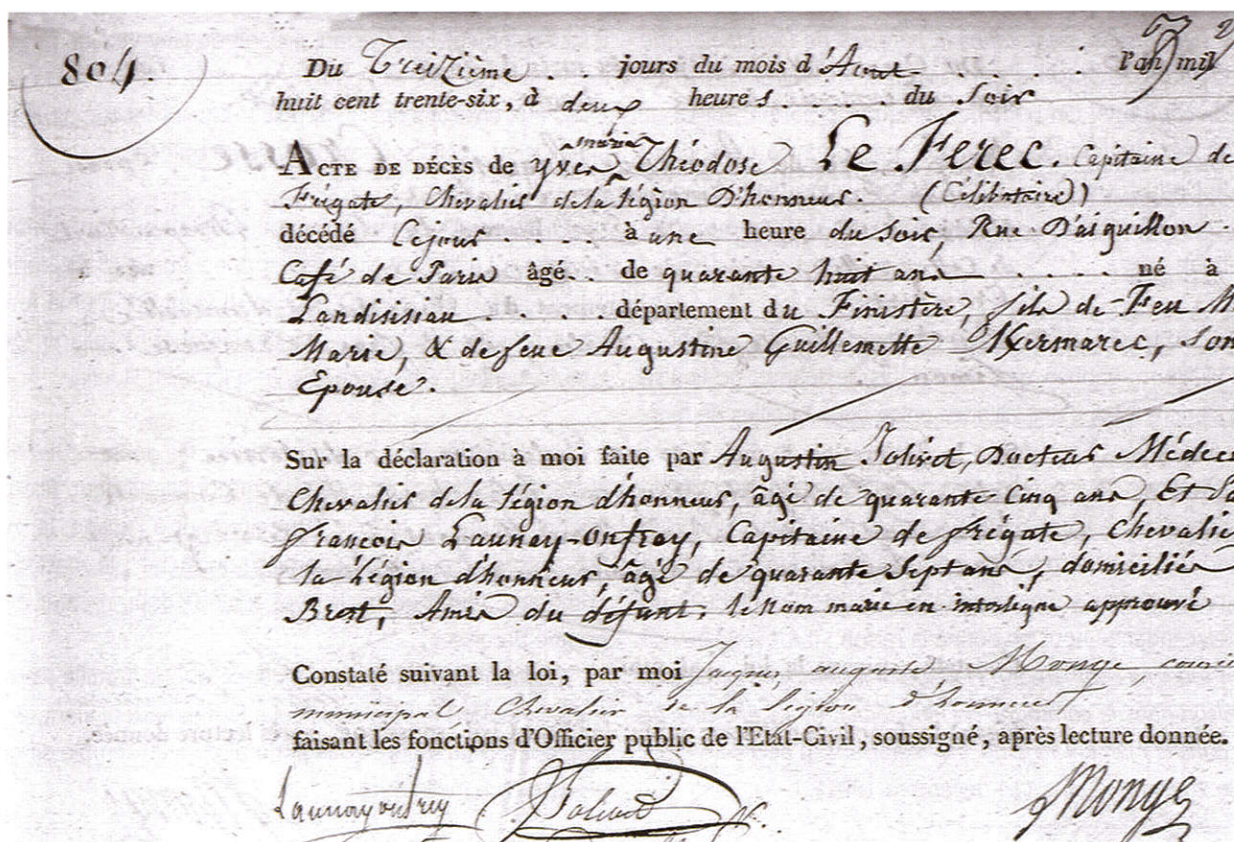 804.
Du Treizième . . jours du mois d'Aout . . . . l'an mil
huit cent trente-six, à deux heures . . . . du Soir
ACTE DE DÉCÈS de Yves marie Théodose Le Ferec. Capitaine de
Frégate, Chevalier de la Légion D'honneur. (Célibataire)
décédé Cejour . . . . à une heure du Soir, Rue D'aiguillon .
Café de Paris âgé . de quarante huit ans . . . . né à
Landisisiau . . . . département du Finistère, fils de Feu M
Marie, & de feue Augustine Guillemette Kermarec, Son
Epouse.
Sur la déclaration à moi faite par Augustin Jolivet, Docteur Médec
Chevalier de la Légion d'honneur, âgé de quarante Cinq ans, Et
françois Launay-Onfroy, Capitaine de frégate, Chevalie
la Légion d'honneur, âgé de quarante Sept ans, domiciliés
Brest, Amis du défunt. le nom marie en interligne approuvé
Constaté suivant la loi, par moi Jacques auguste Monge, conseil
municipal Chevalier de la Légion d'honneur
faisant les fonctions d'Officier public de l'Etat-Civil, soussigné, après lecture donnée.
Launay onfroy Jolivet Monge